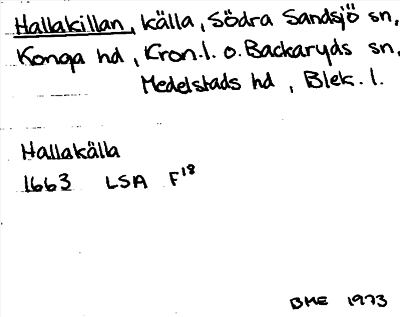 Hallakillan, källa, Södra Sandsjö sn,
Konga hd, Kron.l. o. Backaryds sn,
Medelstads hd, Blek. l.
Hallakälla
1663 LSA F18
BME 1973